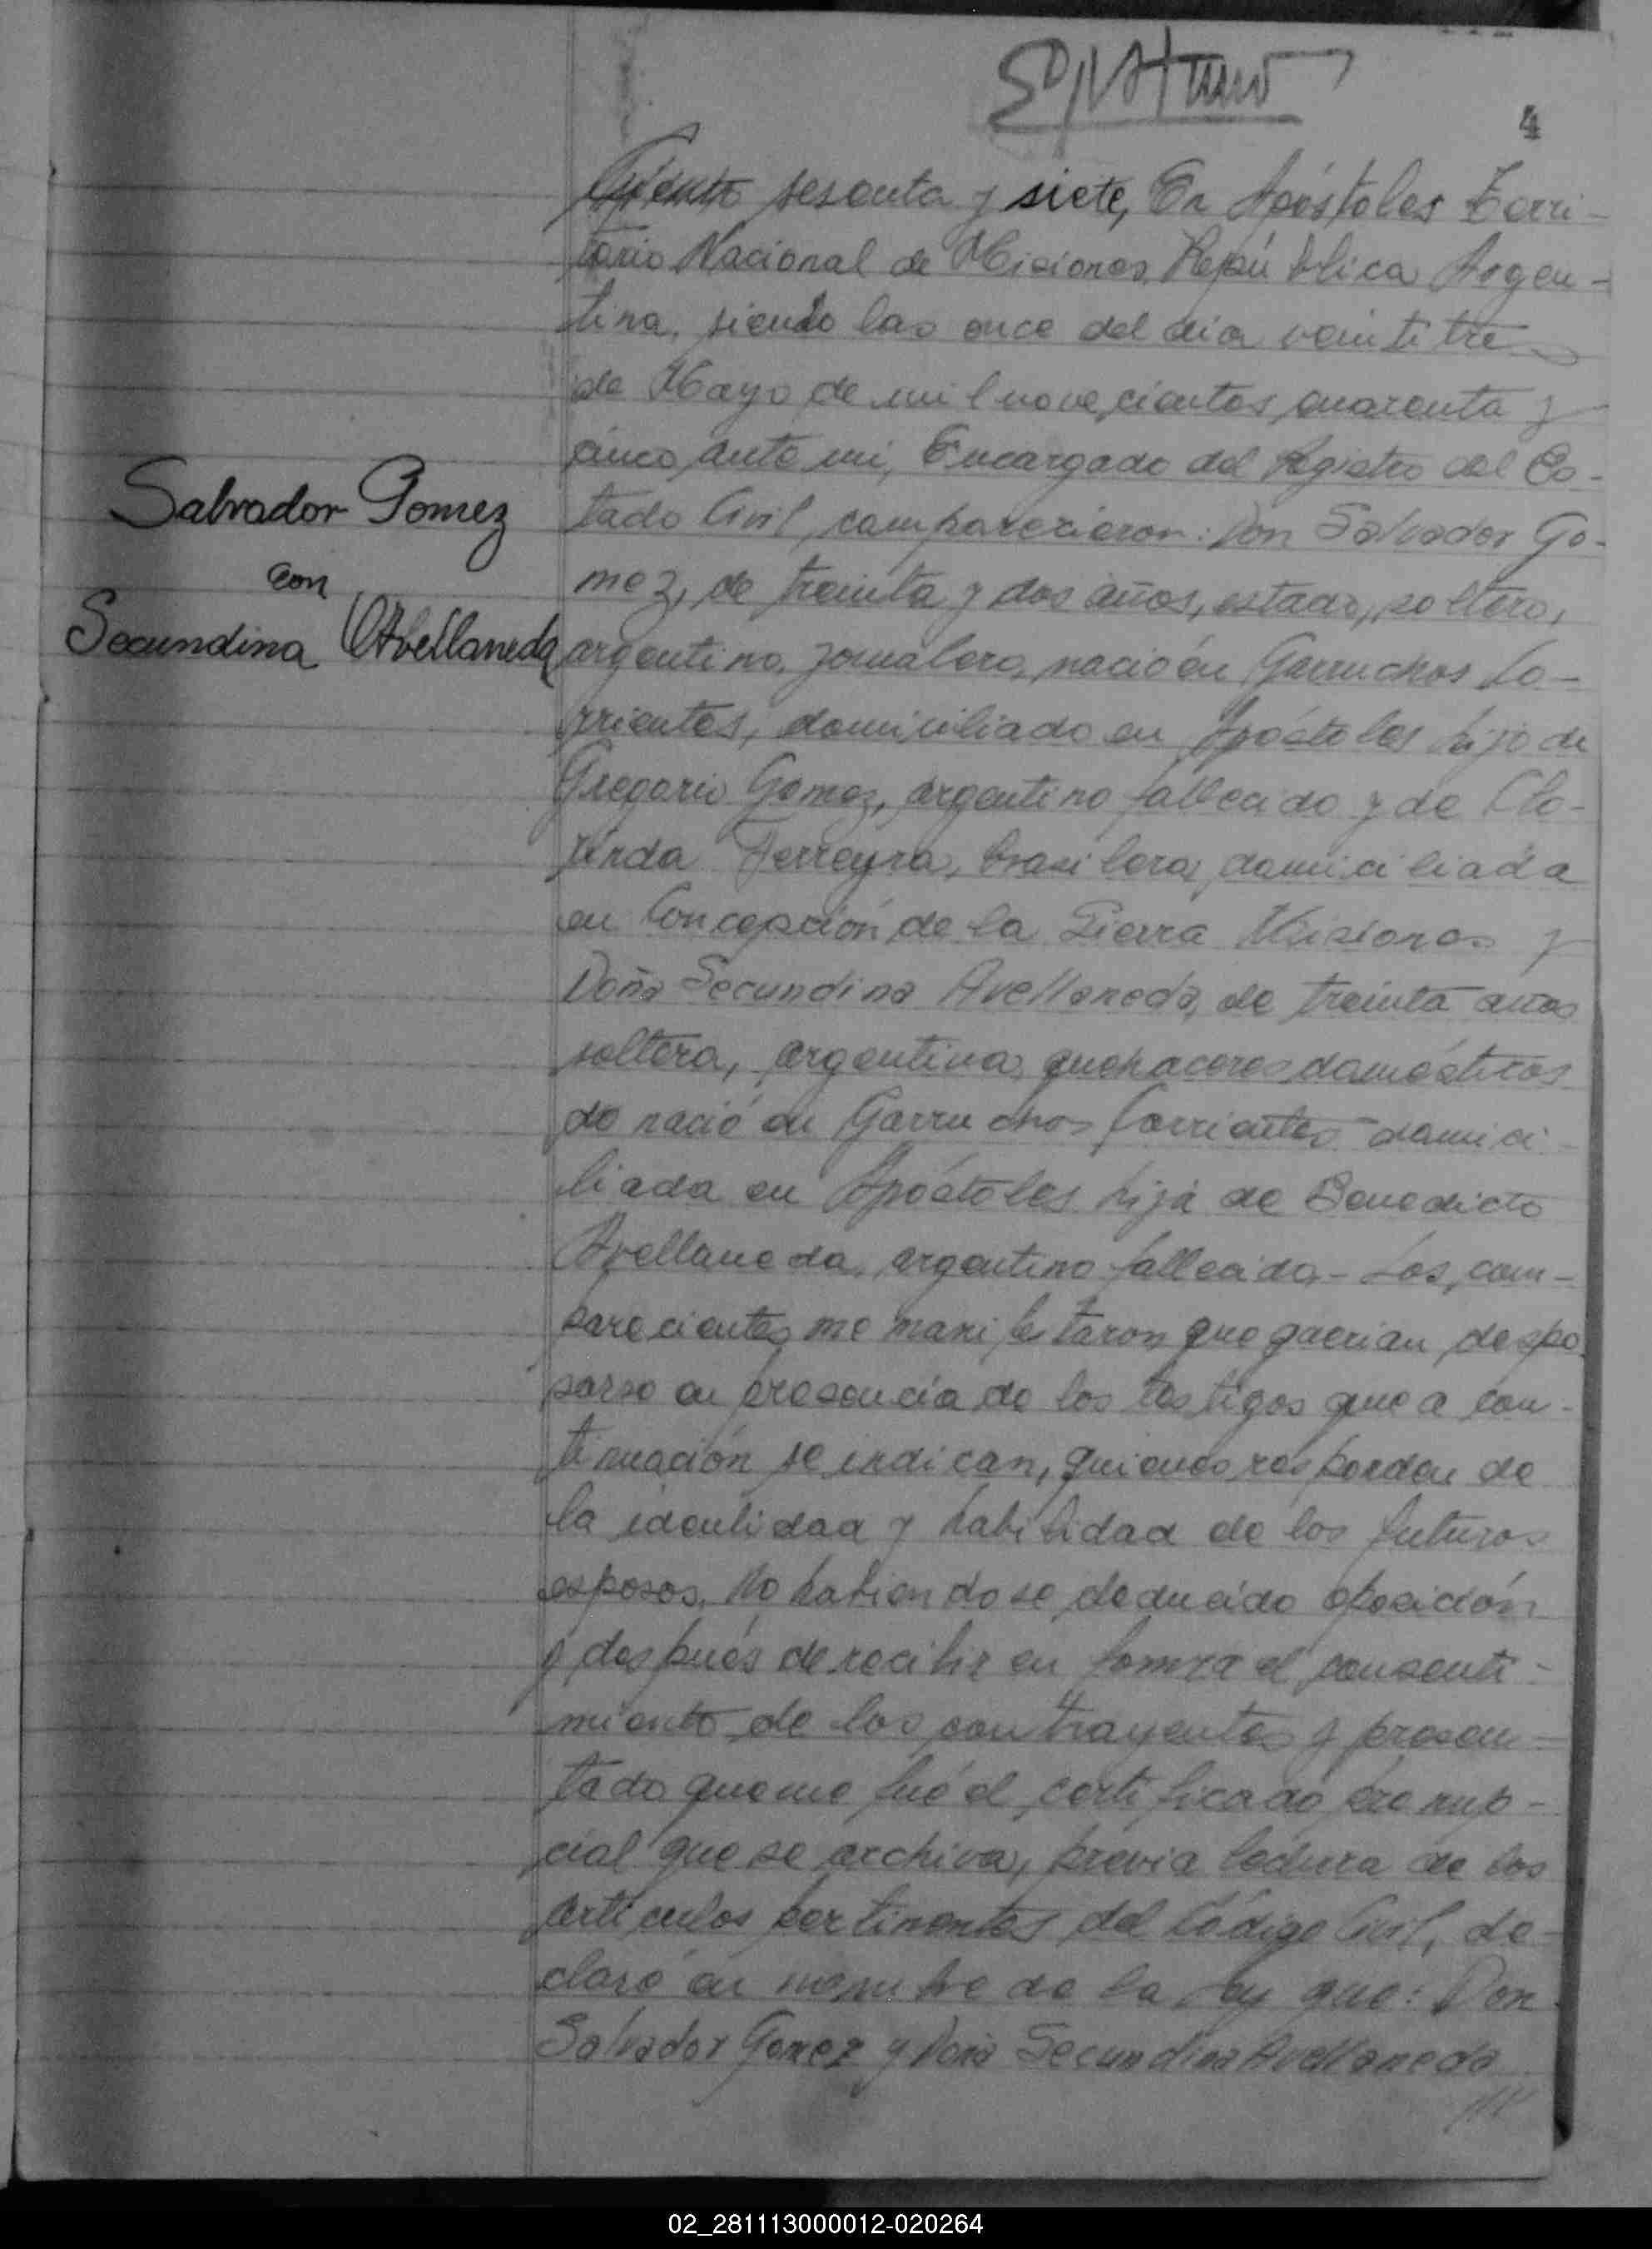 4
sesenta y siete, En Apóstoles Terri-
torio Nacional de Misiones República Argen-
tina, siendo las once del dia veintitres
de Mayo de mil novecientos cuarenta y
cinco, ante mi, Encargado del Registro del Es-
tado Civil, comparecieron: Don Salvador Go-
mez, de treinta y dos años, estado, soltero,
Salvador Gomez
con
Secundina Avellaneda
argentino, jornalero, nació en Garruchos Co-
rrientes, domiciliado en Apóstoles hijo de
Gregorio Gomez, argentino fallecido y de Clo-
rinda Ferreyra, brasilera, domiciliada
en Concepción de la Sierra Misiones y
Doña Secundina Avellaneda, de treinta años
soltera, argentina, quehaceres domésticos
do nació en Garruchos Corrientes domici-
liada en Apóstoles hija de Benedicto
Avellaneda, argentino fallecido.- Los, com-
parecientes me manifetaron que querian despo
sarse en presencia de los testigos que a con-
tinuación se indican, quienes responden de
la identidad y habilidad de los futuros
esposos. No habiendose deducido oposición
y después de recibir en forma el consenti-
miento de los contrayentes y presen-
tado que me fué el certificado prenup-
cial que se archiva, previa lectura de los
artículos pertinentes del Código Civil, de-
claro en nombre de la Ley que: Don
Salvador Gomez y Doña Secundina Avellaneda
///
02_281113000012-020264